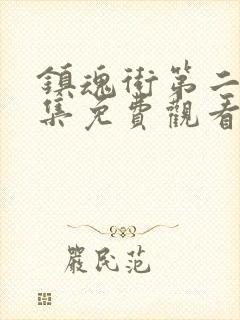 鎮魂街第二
集免費觀看
嚴民范